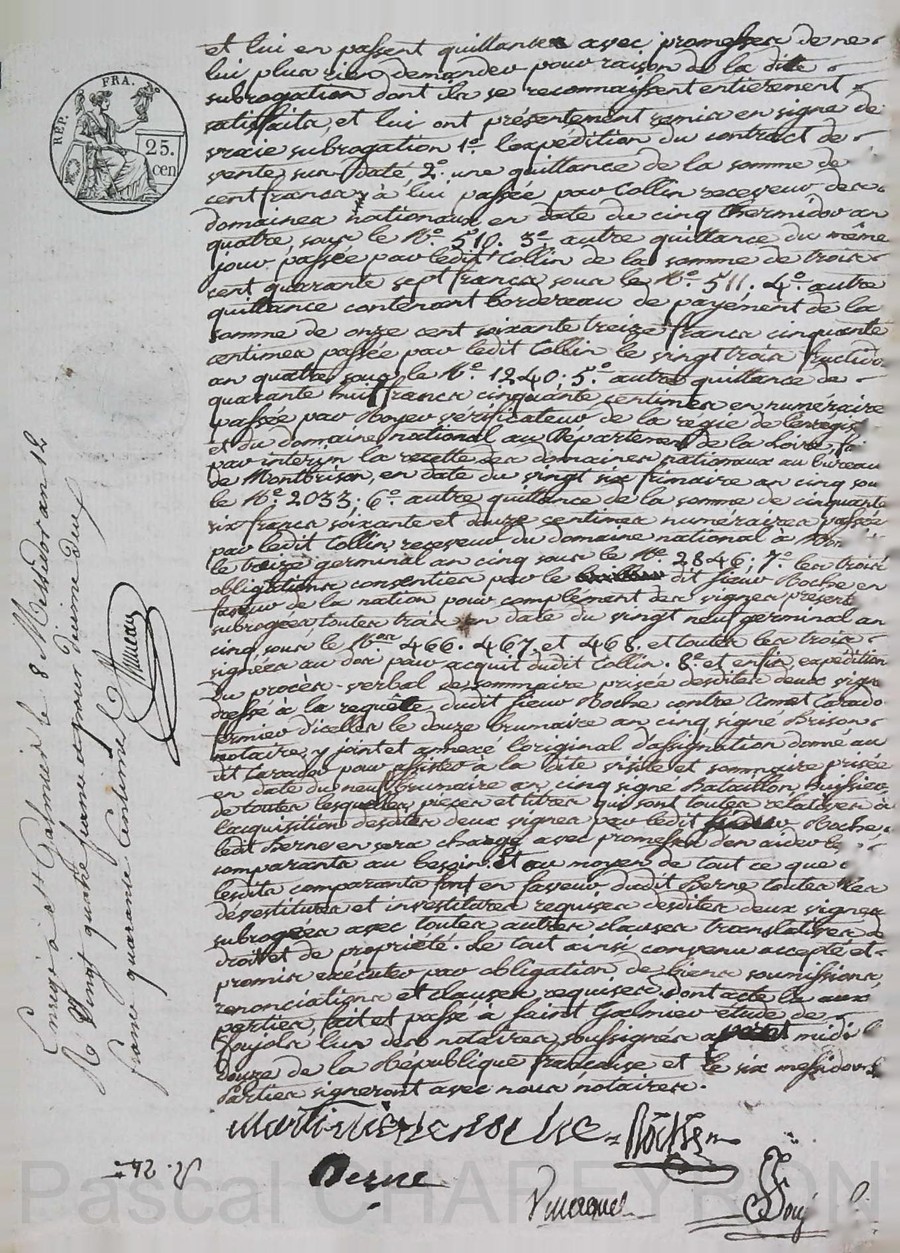 RÉP. FRA.
25.
cen
et lui en passent quittance avec promesses de ne
lui plus rien demander pour raison de la dite
subrogation dont ils se reconnaissent entierement
satisfaits, et lui ont présentement remis en signe de
vraie subrogation 1º. l'expédition du contract de
vente sur daté 2º. une quittance de la somme de
cent francs à lui passée par Collin receveur des
domaines nationaux en date du cinq thermidor an
quatre, sous le Nº. 510. 3º. autre quittance du même
jour passée par ledit Collin de la somme de trois
cent quarante sept francs sous le Nº. 511. 4º. autre
quittance contenant bordereau de payement de la
somme de onze cent soixante treize francs cinquante
centimes passée par ledit Collin le vingt trois fructidor
an quatre sous le Nº. 1240; 5º. autre quittance de
quarante huit francs cinquante centimes en numéraire
passée par Royer vérificateur de la regie de l'enregis
et du domaine national au Département de la Loire,
par interim la recette des domaines nationaux au bureau
de Montbrison, en date du vingt six frimaire an cinq sou
le Nº. 2033; 6º. autre quittance de la somme de cinquante
six francs soixante et douze centimes numéraires passée
par ledit Collin, receveur du domaine national à
le treize germinal an cinq sous le Nº. 2846; 7º. les trois
obligations consenties par le dit sieur Roche en
faveur de la nation pour complement des vignes présente
subrogées toutes trois en date du vingt neuf germinal an
cinq sous les Nos. 466. 467. et 468. et toutes les trois
signées au dos pour acquit dudit Collin. 8º. et enfin, expédition
du procès-verbal de sommaire prisée desdites deux vigne
dressé à la requête dudit sieur Roche contre
fermier d'icelles le douze brumaire an cinq signé Brison
notaire, y joint et annexé l'original d'assignation donné au
dit pour assister à la dite visite et sommaire prisée
en date du neuf brumaire an cinq signé Bataillon, huissier
de toutes lesquelles pièces et titres qui sont toutes relatives à
l'acquisition desdites deux vignes par ledit Roche,
ledit Berne en sera chargé avec promesse d'en aider les
comparants au besoin. Et au moyen de tout ce que
lesdits comparants font en faveur dudit Berne toutes les
devestitures et investitures requises desdites deux vignes
subrogées avec toutes autres clauses translatives de
droit et de propriété. Le tout ainsi convenu accepté et
promis exécuter par obligation de biens soumissions,
renonciations et clauses requises, dont acte lu aux
parties, fait et passé à Saint Galmier étude de
Poujols l'un des notaires soussignés midi l
douze de la République française et le six messidor
Parties signeront avec nous notaires.
Berne
Enregé à St Galmier le 8 Messidor an 12
vingt quatre francs et pour dixieme deux
francs quarante centimes
Pascal CHAPEYRON